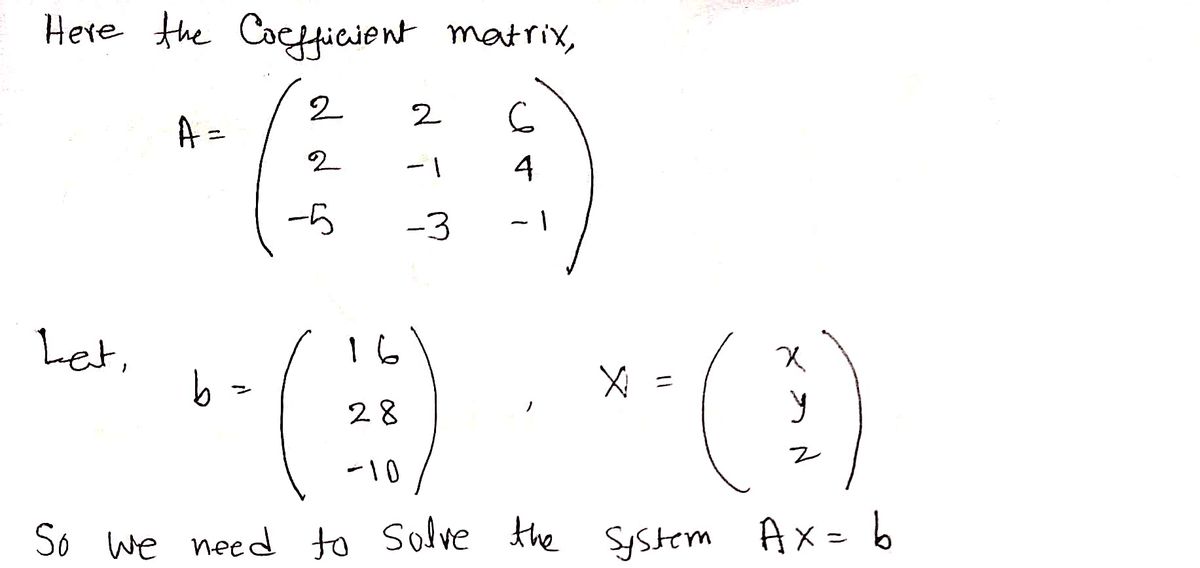 Here the Coefficient matrix,
A = ( 2 2 6
2 -1 4
-5 -3 -1 )
Let, b = ( 16 28 -10 ) , X = ( x y z )
So we need to Solve the System AX = b